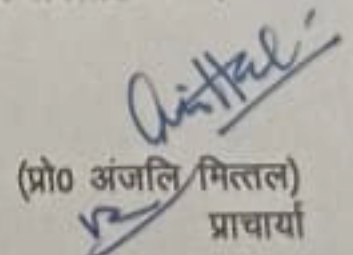 (प्रो0 अंजलि मित्तल)
प्राचार्या